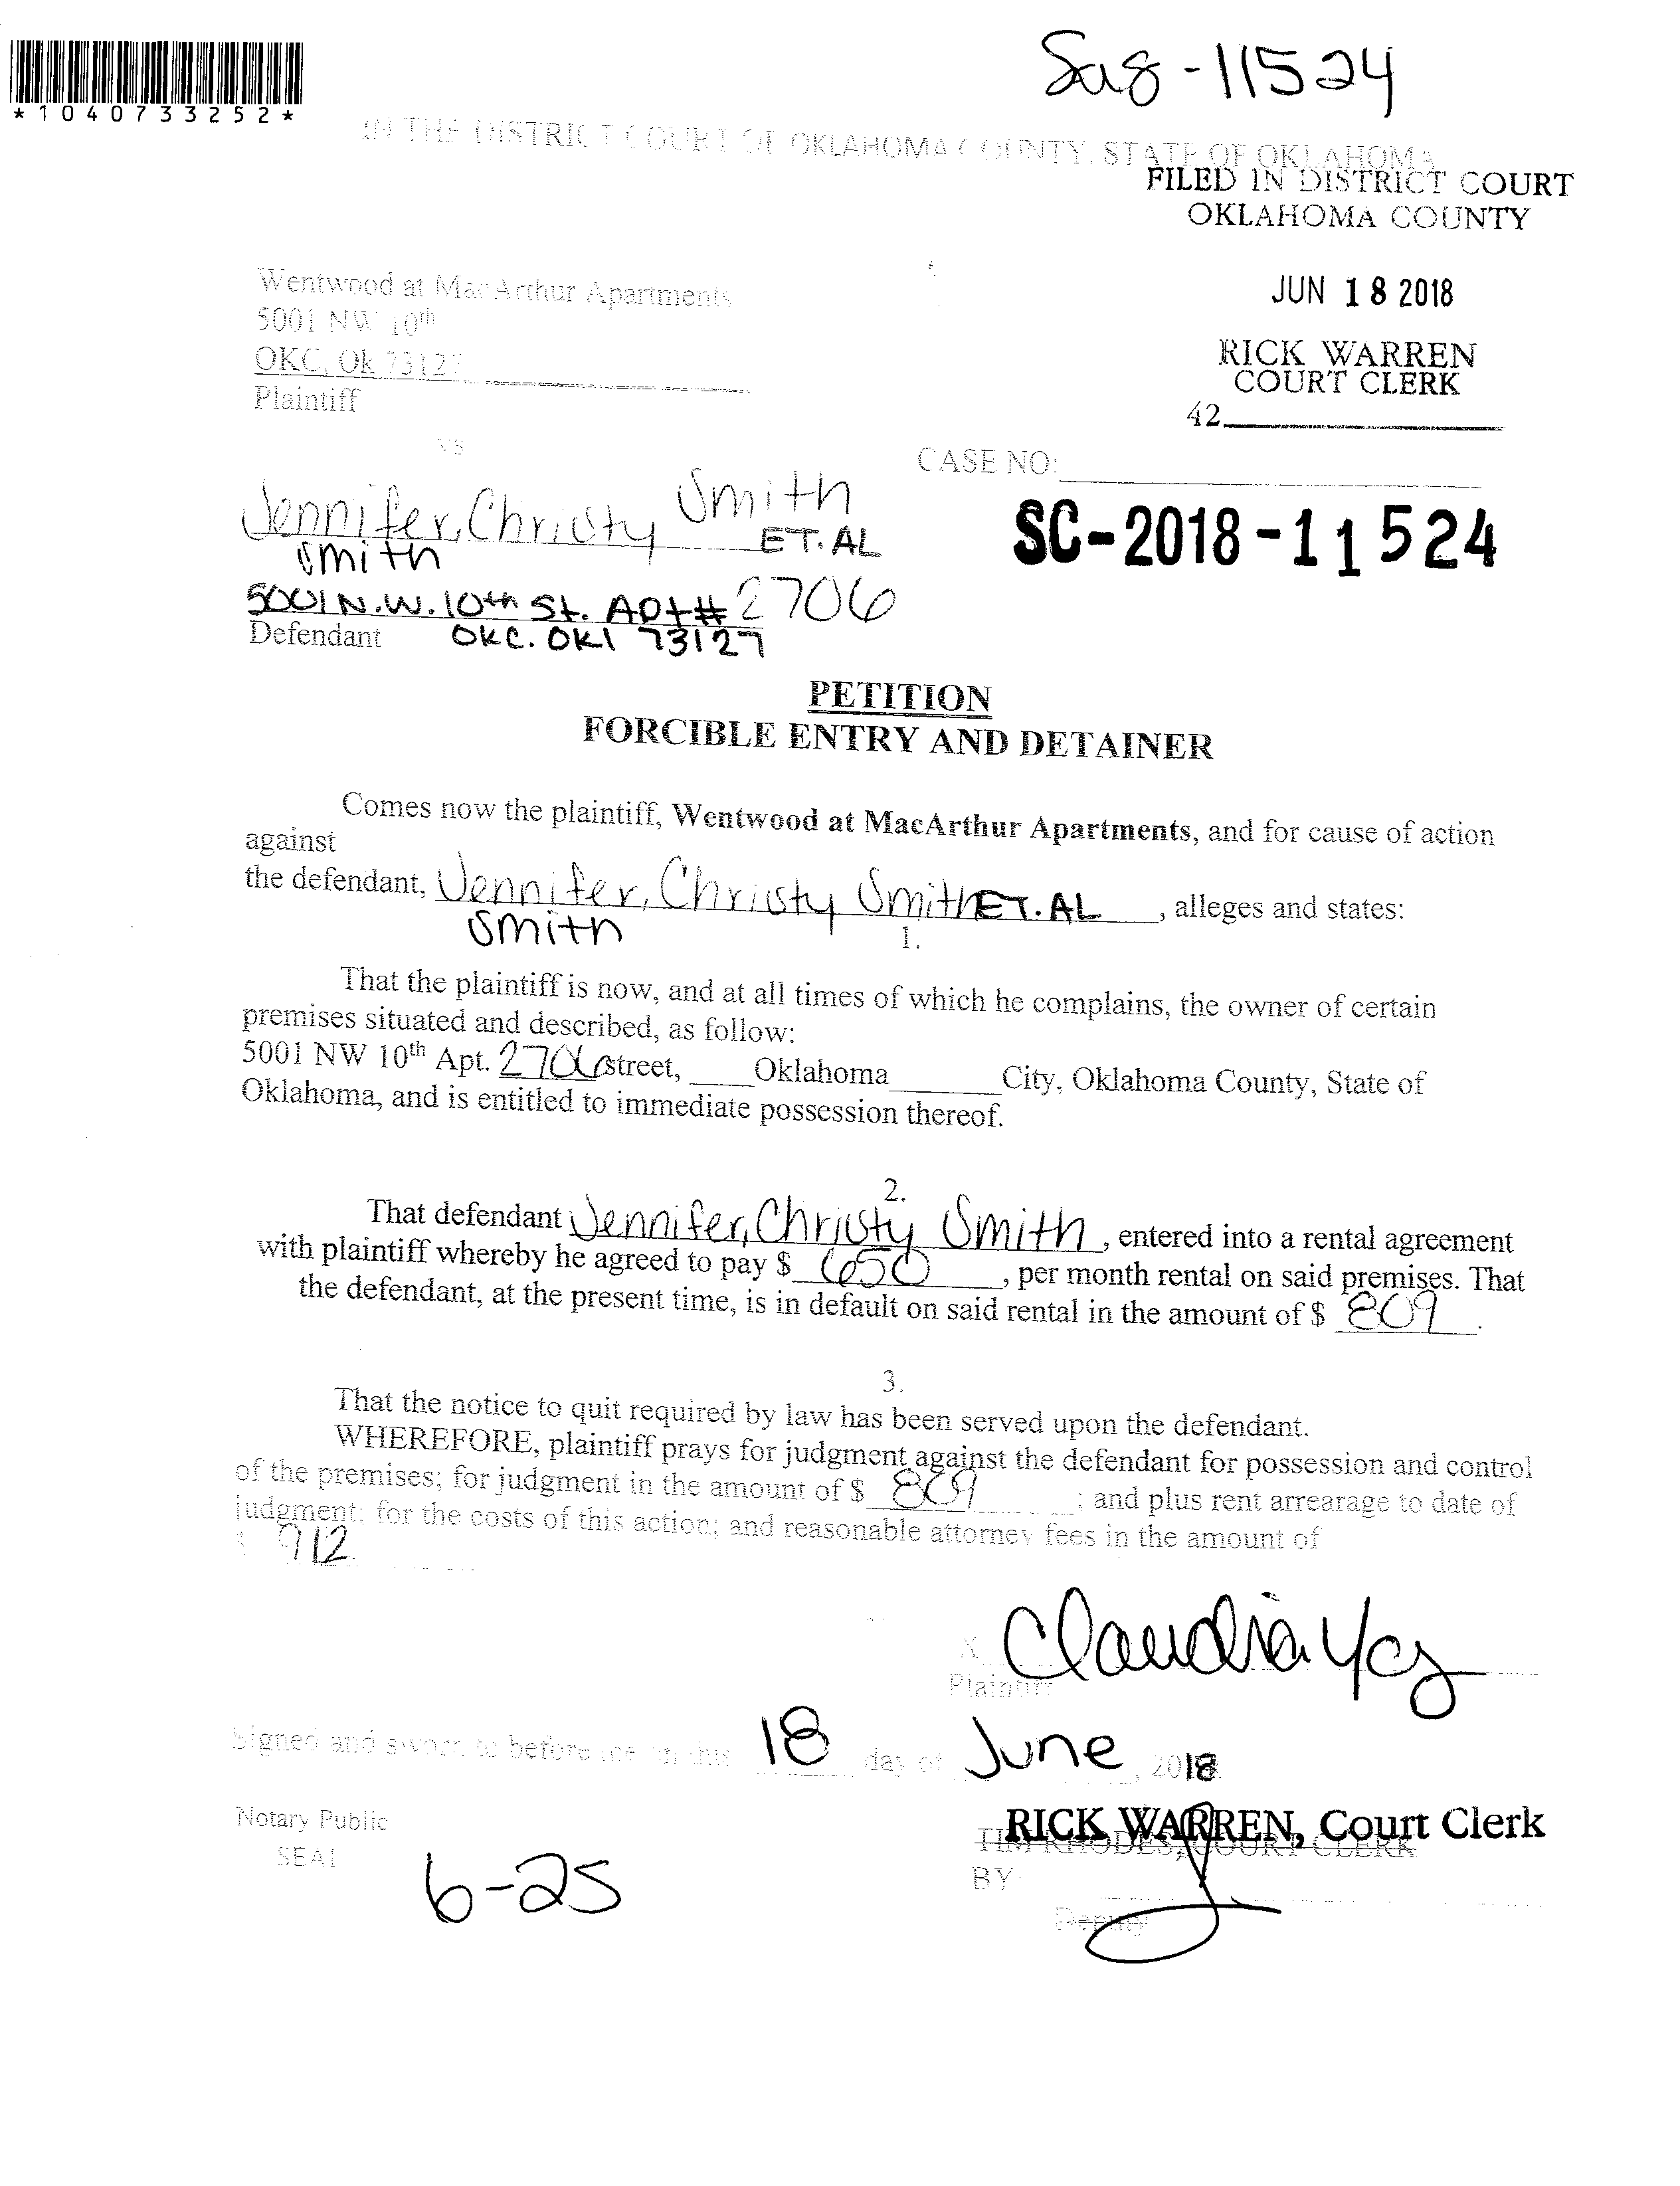 *1040733252*
Sa8-11524
IN THE DISTRICT COURT OF OKLAHOMA COUNTY, STATE OF OKLAHOMA
FILED IN DISTRICT COURT
OKLAHOMA COUNTY
Wentwood at MacArthur Apartments
5001 NW 10th
OKC, Ok 73127
Plaintiff
JUN 18 2018
RICK WARREN
COURT CLERK
42
vs
CASE NO:
Jennifer, Christy Smith
Smith
ET. AL
SC-2018-11524
5001 N.W. 10th St. Apt# 2706
Defendant OKC. OKl 73127
PETITION
FORCIBLE ENTRY AND DETAINER
Comes now the plaintiff, Wentwood at MacArthur Apartments, and for cause of action
against
the defendant, Jennifer, Christy Smith ET. AL, alleges and states:
Smith
1.
That the plaintiff is now, and at all times of which he complains, the owner of certain
premises situated and described, as follow:
5001 NW 10th Apt. 2706 street, Oklahoma City, Oklahoma County, State of
Oklahoma, and is entitled to immediate possession thereof.
2.
That defendant Jennifer, Christy Smith, entered into a rental agreement
with plaintiff whereby he agreed to pay $ 650, per month rental on said premises. That
the defendant, at the present time, is in default on said rental in the amount of $ 809.
3.
That the notice to quit required by law has been served upon the defendant.
WHEREFORE, plaintiff prays for judgment against the defendant for possession and control
of the premises; for judgment in the amount of $ 809; and plus rent arrearage to date of
judgment; for the costs of this action; and reasonable attorney fees in the amount of
$ 912
X Claudia
Plaintiff
Signed and sworn to before me on this 18 day of June, 2018.
Notary Public
SEAL
6-25
RICK WARREN, Court Clerk
TIM RHODES, COURT CLERK
BY
Deputy